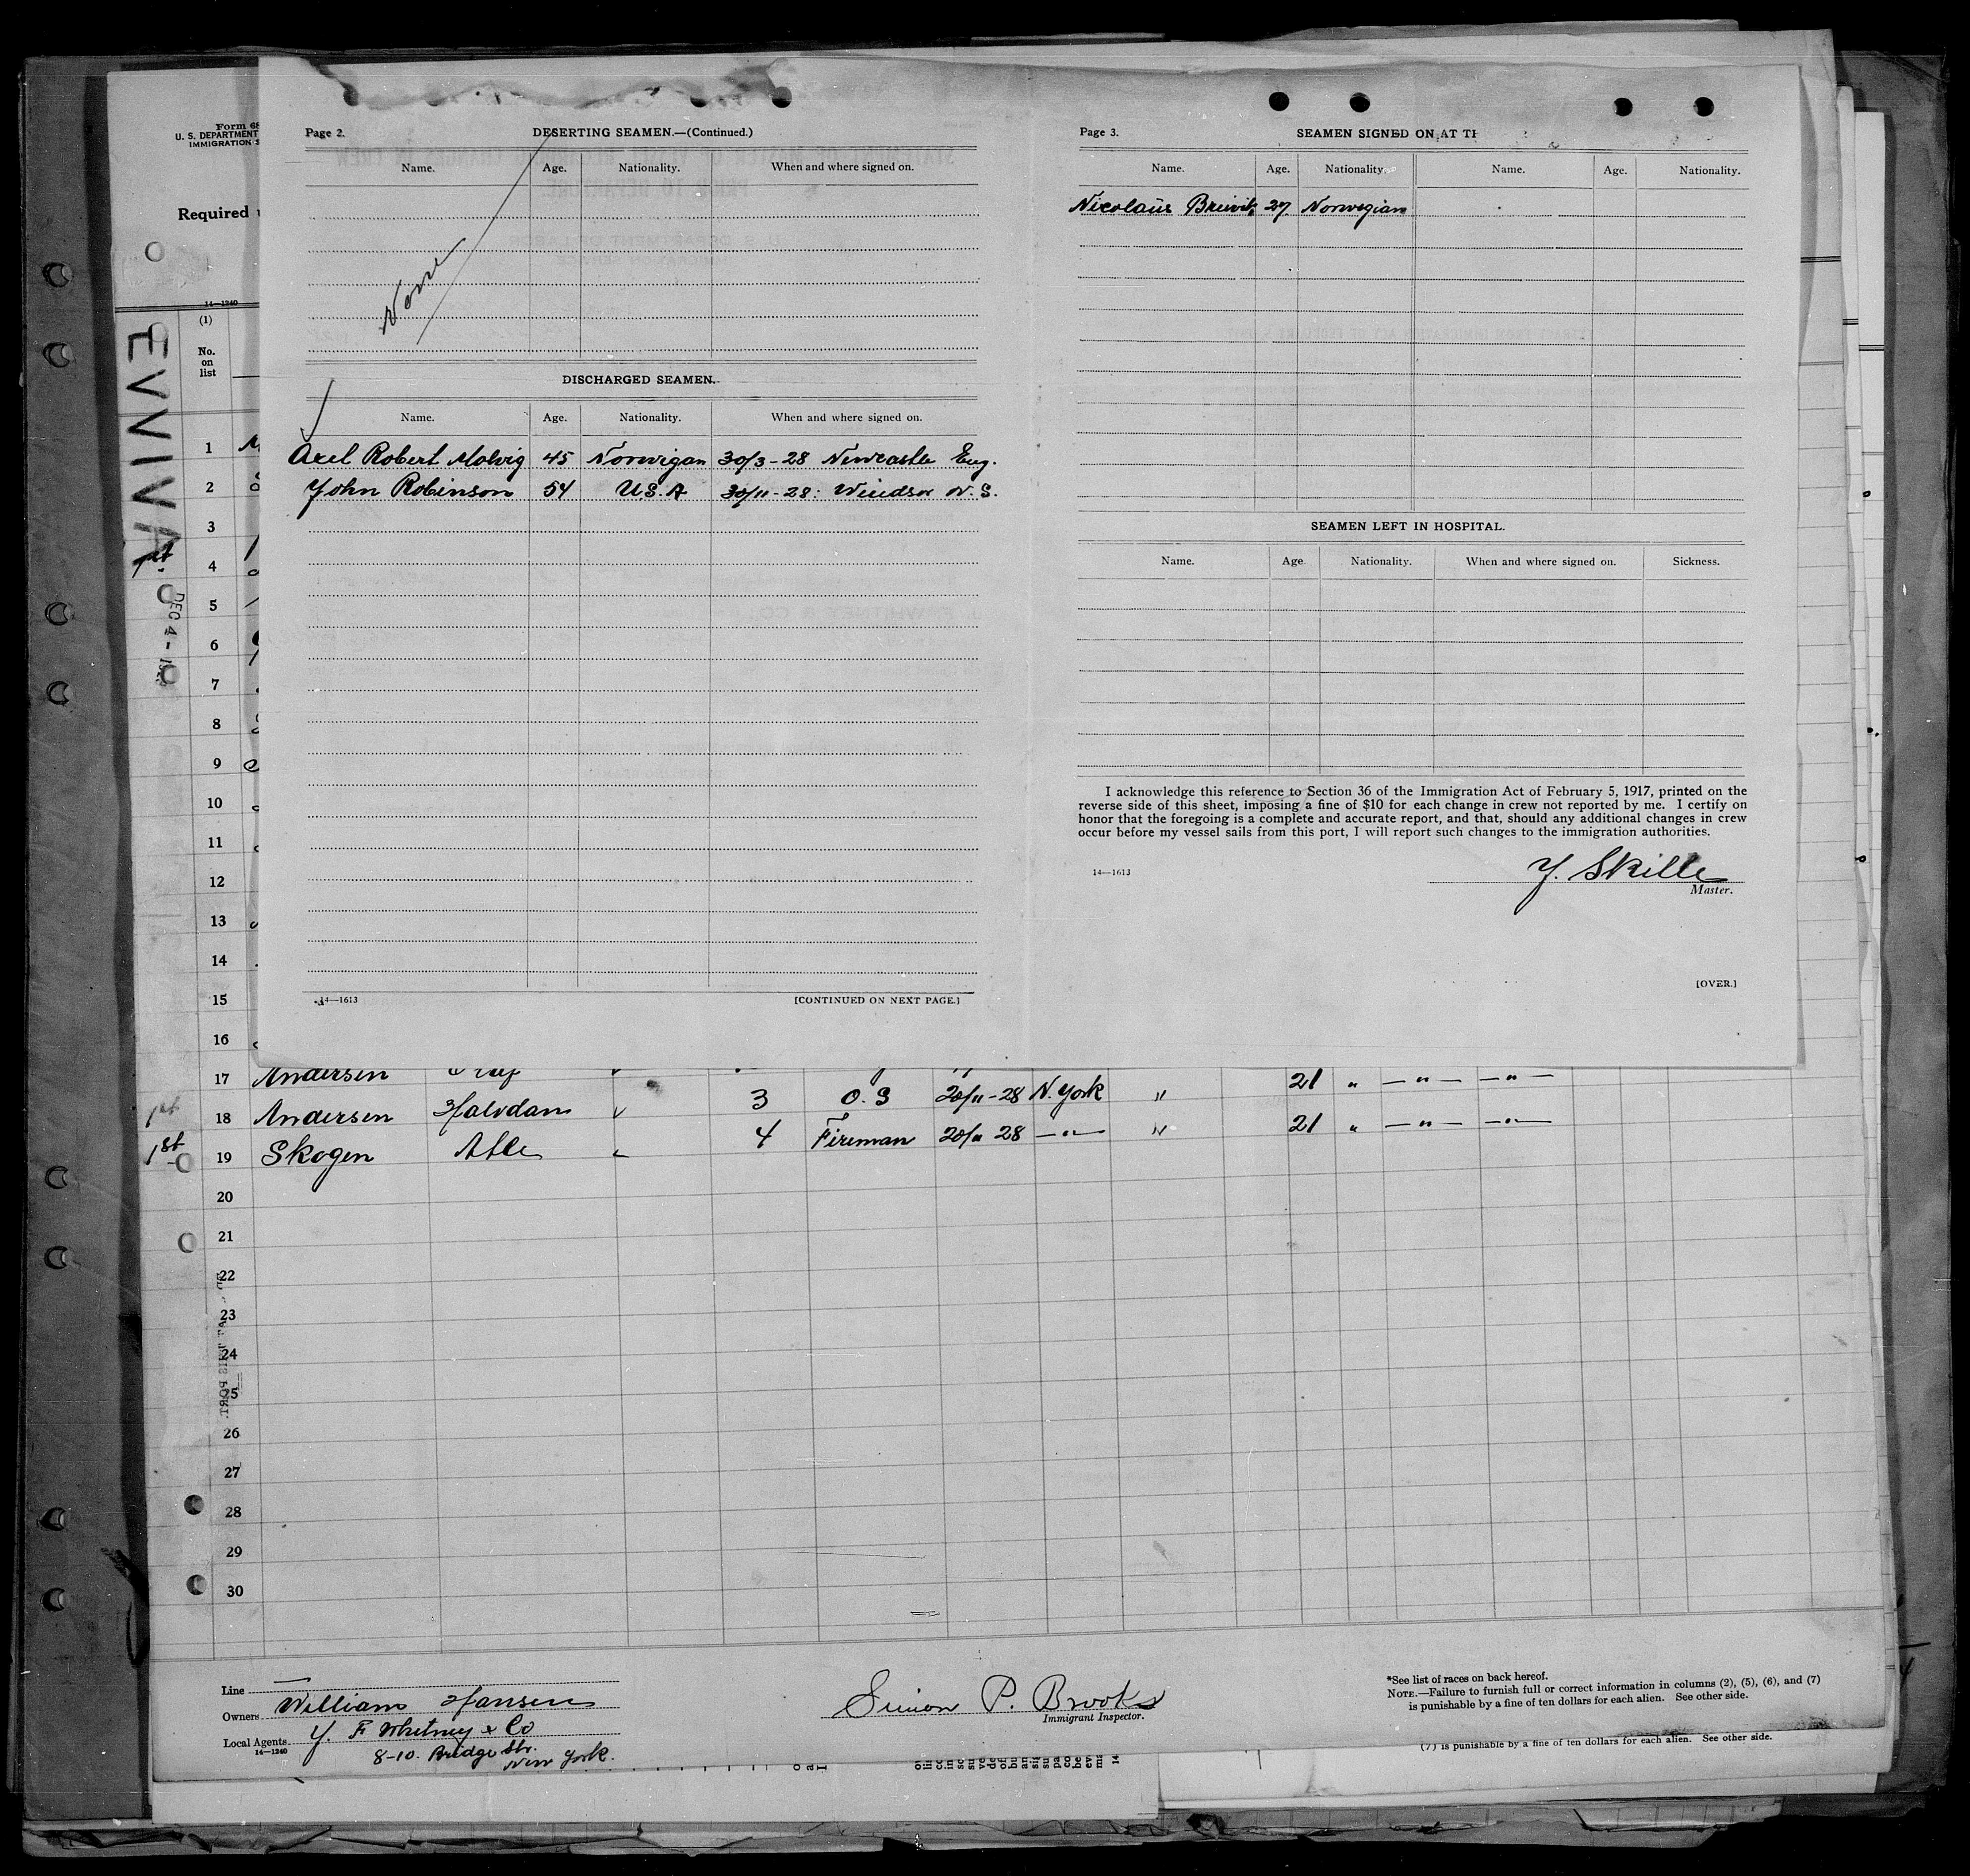 Form 68
U. S. DEPARTMENT
IMMIGRATION S
Required
14—1240
(1)
No.
on
list
EVVIVA
DEC 4 -
Page 2.
DESERTING SEAMEN.—(Continued.)
Name. Age. Nationality. When and where signed on.
None
DISCHARGED SEAMEN.
Name. Age. Nationality. When and where signed on.
Axel Robert Molvig 45 Norwigan 30/3-28 Newcastle Eng.
John Robinson 54 U.S.A 30/11-28: Windsor N.S.
14—1613
[CONTINUED ON NEXT PAGE.]
Page 3.
SEAMEN SIGNED ON AT TH
Name. Age. Nationality. Name. Age. Nationality.
Nicolaus Breivik 27 Norwegian
SEAMEN LEFT IN HOSPITAL.
Name. Age Nationality. When and where signed on. Sickness.
I acknowledge this reference to Section 36 of the Immigration Act of February 5, 1917, printed on the
reverse side of this sheet, imposing a fine of $10 for each change in crew not reported by me. I certify on
honor that the foregoing is a complete and accurate report, and that, should any additional changes in crew
occur before my vessel sails from this port, I will report such changes to the immigration authorities.
14—1613
Y. Skille
Master.
[OVER.]
1
2
3
1st 4
5
6
7
8
9
10
11
12
13
14
15
16
17 Andersen 21 " —"— —"—
1st 18 Andersen Halvdan 3 O.S 20/11-28 N.York " 21 " —"— —"—
1st 19 Skogen Atle 4 Fireman 20/11 28 —"— "
20
21
22
23
24
25
26
27
28
29
30
Line
Owners William Hansen
Local Agents Y. F Whitney & Co
14—1240
8-10. Bridge Str.
New York.
Simon P. Brooks
Immigrant Inspector.
*See list of races on back hereof.
NOTE.—Failure to furnish full or correct information in columns (2), (5), (6), and (7)
is punishable by a fine of ten dollars for each alien. See other side.
(7) is punishable by a fine of ten dollars for each alien. See other side.